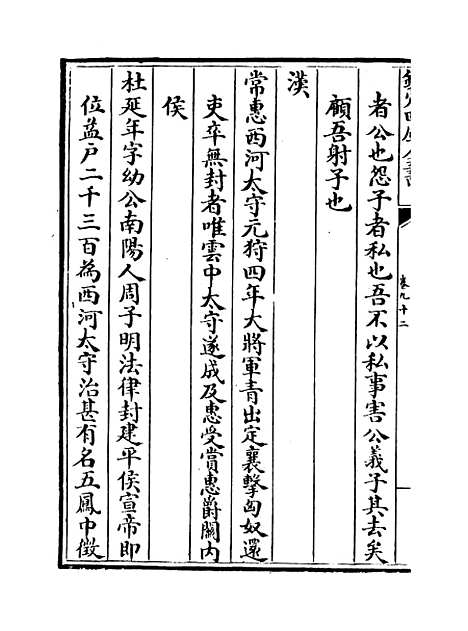 欽定四庫全書
卷九十二
者公也怨子者私也吾不以私事害公義子其去矣
顧吾射子也
漢
常惠西河太守元狩四年大將軍青出定襄擊匈奴還
吏卒無封者唯雲中太守遂成及惠受賞惠爵關内
侯
杜延年字幼公南陽人周子明法律封建平侯宣帝即
位益户二千三百為西河太守治甚有名五鳳中徴